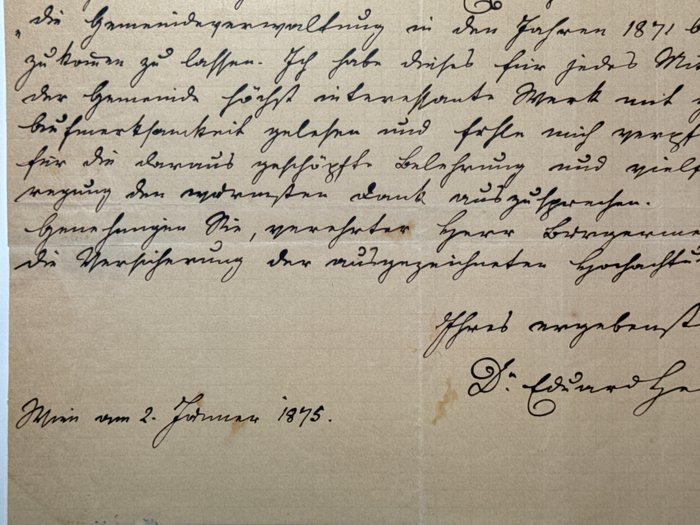 „die Gemeindeverwaltung in den Jahren 1871 b
zukomen zu lassen. Ich habe dieses für jedes Mit
der Gemeinde höchst interessante Werk mit g
Aufmerksamkeit gelesen und fühle mich verpf
für die daraus geschöpfte Belehrung und vielf
regung den wärmsten Dank auszusprechen.
Genehmigen Sie, verehrter Herr Bürgerme
die Versicherung der ausgezeichneten Hochachtu
Ihres ergebenst
Dr Eduard He
Wien am 2. Jänner 1875.